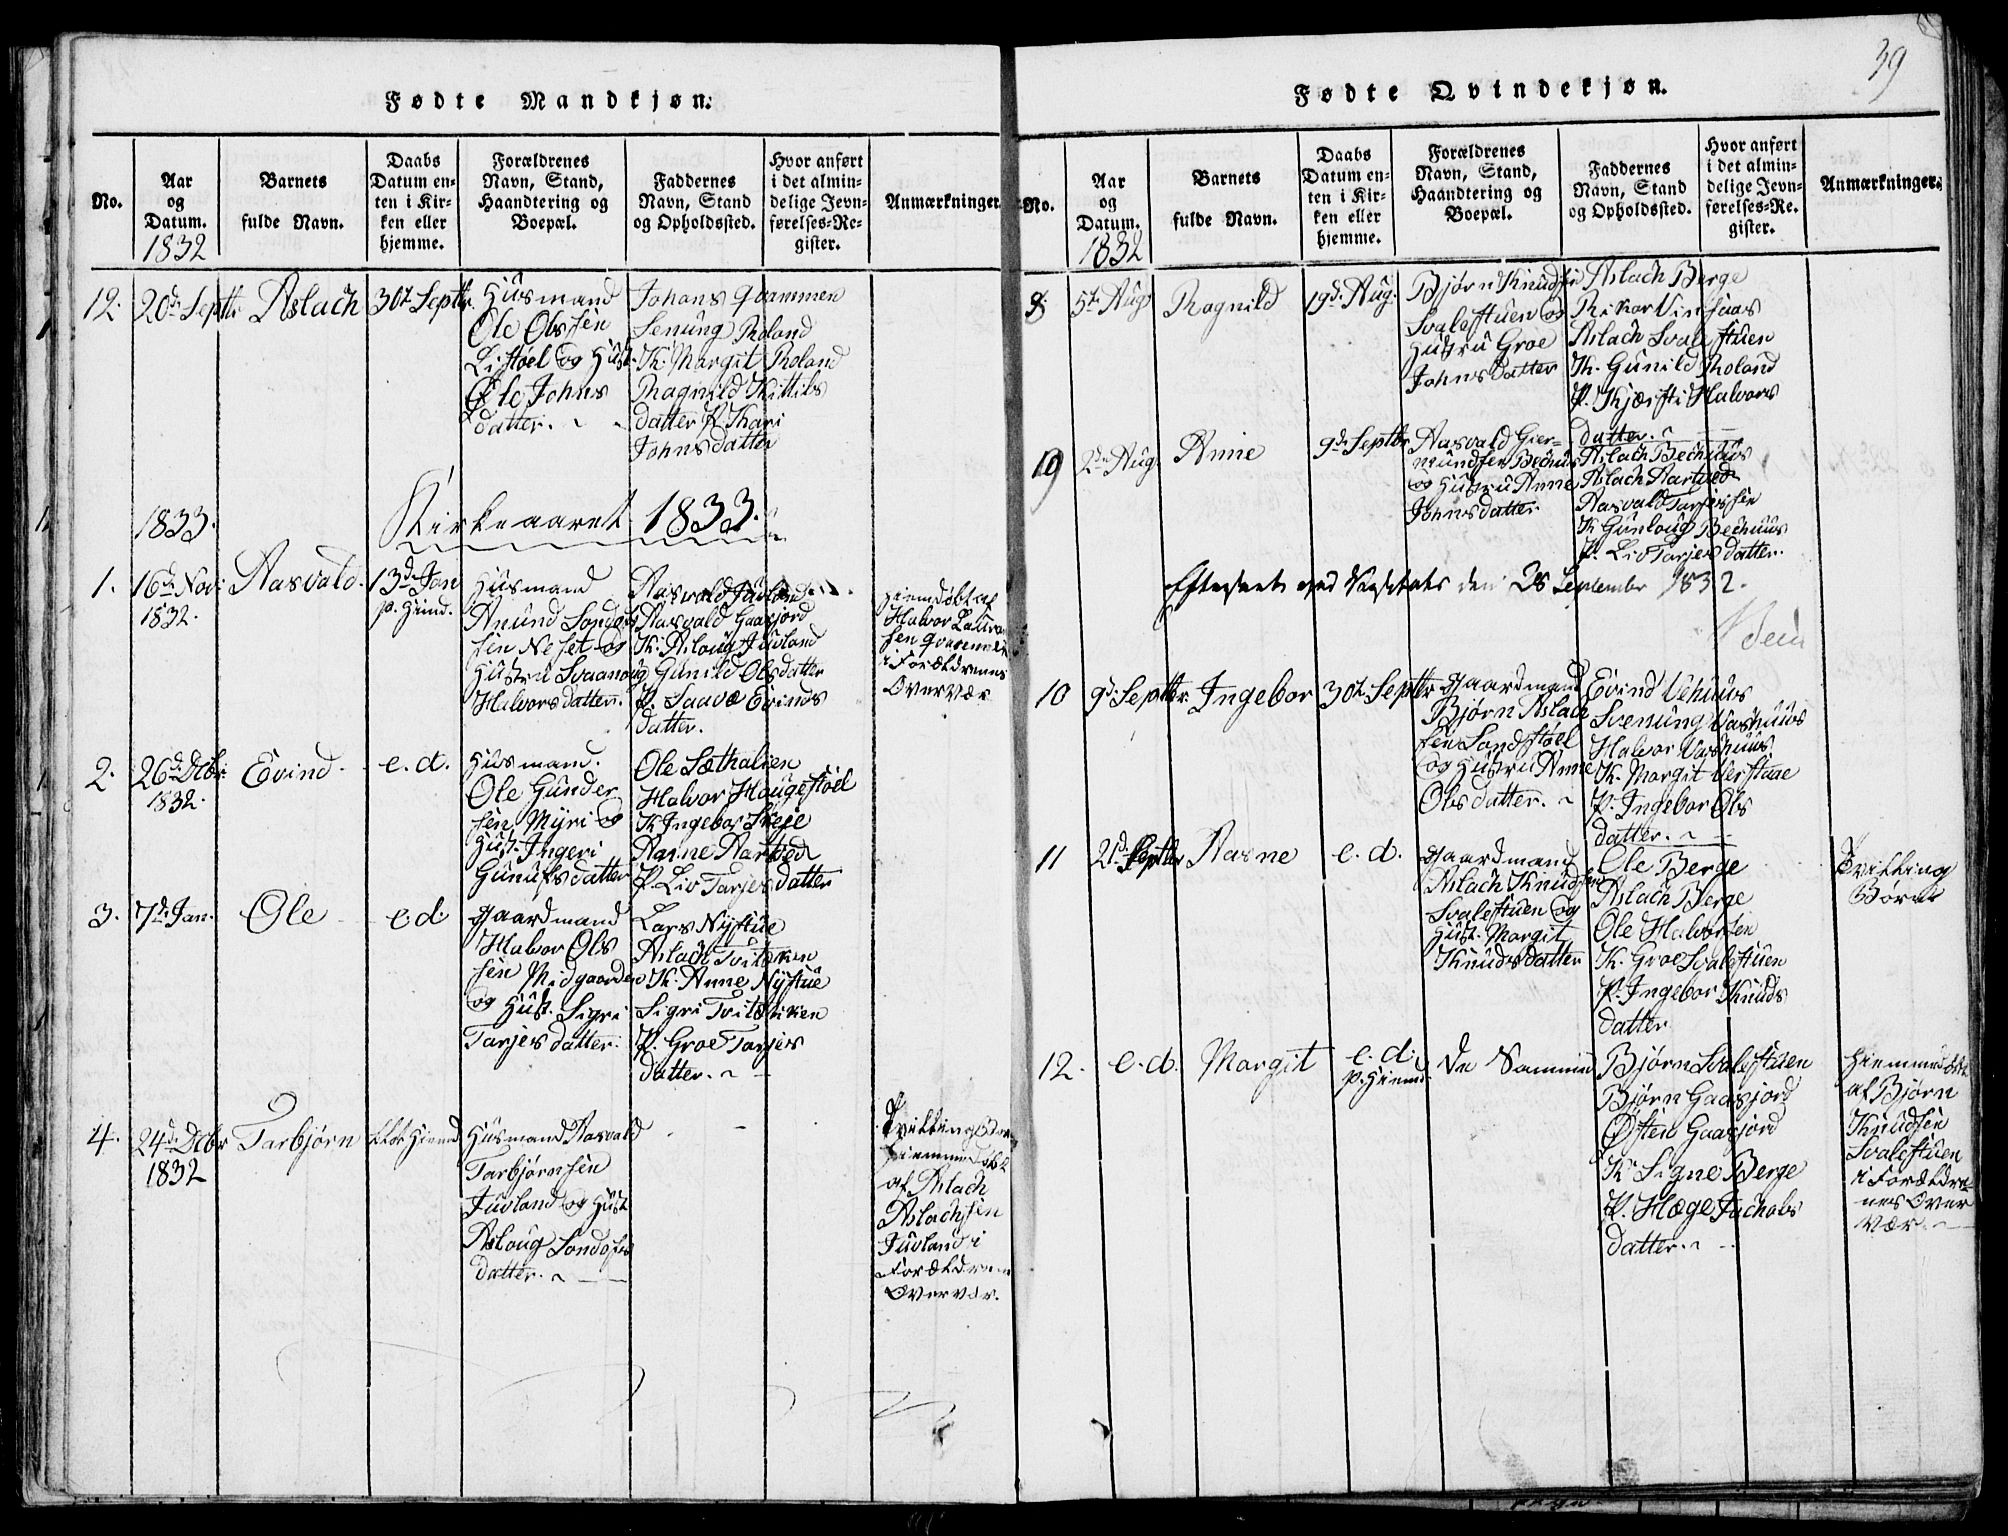 Fødte Mandkjøn.
No.
Aar
og
Datum.
1832
Barnets
fulde Navn.
Daabs
Datum en-
ten i Kir-
ken eller
hjemme.
Forældrenes
Navn, Stand,
Haandtering og
Boepæl.
Faddernes
Navn, Stand
og Opholdssted.
Hvor anført
i det almin-
delige Jevn-
førelses-Re-
gister.
Anmærkninger.
12.
20d. Septbr
Aslach
30t. Septbr.
Husmand
Ole Olssen
Listøel og Hust.
Øle Johns
datter.
Johans Qvammen
Senung Roland
K. Margit Roland
Ragnild Kittils
datter P. Kari
Johnsdatter
1833.
Kirkeaaret 1833.
1.
16de Nov:
1832.
Aasvald.
13de Jan
p. Hiind.
Husmand
Anund Sondes
sen Neset og
Hustru Svaanoug
Halvorsdatter.
Aasvald Juvland
Aasvald Gaasjord
K. Asloug Juvland
Gunild Olsdatter
P. Saavæ Evinds
datter.
Hiemdøbt af
Halvor Laurs
sen Qvammen
i Forældrenes
Overvær
2.
26d. Dcbr:
1832.
Eövind
e. d.
Husmand.
Ole Gunder
sen Myri og
Hust. Ingeri
Gunulfsdatter
Ole Sæthalien
Halvor Haugestøel
K Ingebor Skeje
Aasne Aartved
P. Liv Tarjesdatter
3.
7d. Jan.
Ole
e. d.
Gaardmand
Halvor Ols
sen Midgaarden
og Hust. Sigri
Tarjesdatter.
Lars Nystue
Aslach Tvitækken
K. Anne Nystue
Sigri Tvitækken
P. Groe Tarjes
datter.
4.
24d. Dcbr
1832
Tarbjørn
Husmand Aasvald
Tarbjørnsen
Juvland og Hust
Asloug Sondofs
datter.
Tvillingbørn
hiemmedøbt
af Aslach
Aslachsen
Juvland i
Forældrenes
Overvær.
39
Fødte Qvindekjøn.
No.
Aar
og
Datum.
1832
Barnets
fulde Navn.
Daabs
Datum en-
ten i Kir-
ken eller
hjemme.
Forældrenes
Navn, Stand,
Haandtering og
Boepæl.
Faddernes
Navn, Stand
og Opholdssted.
Hvor anført
i det almin-
delige Jevn-
førelses-Re-
gister.
Anmærkninger.
8
5t. Aug
Ragnild
19d. Aug.
Bjørn Knudsen
Svalestuen og
Hustru Groe
Johnsdatter
Aslach Berge
Rikar Vinsaas
Aslach Svalestuen
K. Gunild Roland
P. Kjæsti Halvors
datter.
9
2de Aug.
Anne
9de Septbr
Aasvald Gier-
mundsen Bechuus
og Hustru Anne
Johnsdatter
Aslach Bechuus
Aslach Aartved
Aasvald Tarjessen
K. Gunloug Bechuus
P. Liv Tarjesdatter.
Efterseet ved Visitats den 28 September 1832.
10
9d. Septbr.
Ingebor
30t. Septbr
Gaardmand
Bjørn Aslach
sen Sandstøel
og Hustru Anne
Olsdatter.
Eövind Vehuus
Svenung Vashuus
Halvor Vashuus
K. Margit Verstaae
P. Ingebor Ols
datter.
11
21d. Septbr
Aasne
e. d.
Gaardmand
Aslach Knudsen
Svalestuen og
Hust. Margit
Knudsdatter
Ole Berge
Aslach Berge
Ole Halvorsen
K. Groe Svalestuen
P. Ingebor Knuds
datter
Tvilling
Børn
12.
e. d.
Margit
e. d.
p. Hiemd.
De Samme
Bjørn Svalestuen
Bjørn Gaasjord
Øisten Gaasjord
K. Signe Berge
P. Hæge Jachobs
datter.
Hiemmedøbt
af Bjørn
Knudsen
Svalestuen
i Forældre-
nes Over
vær.